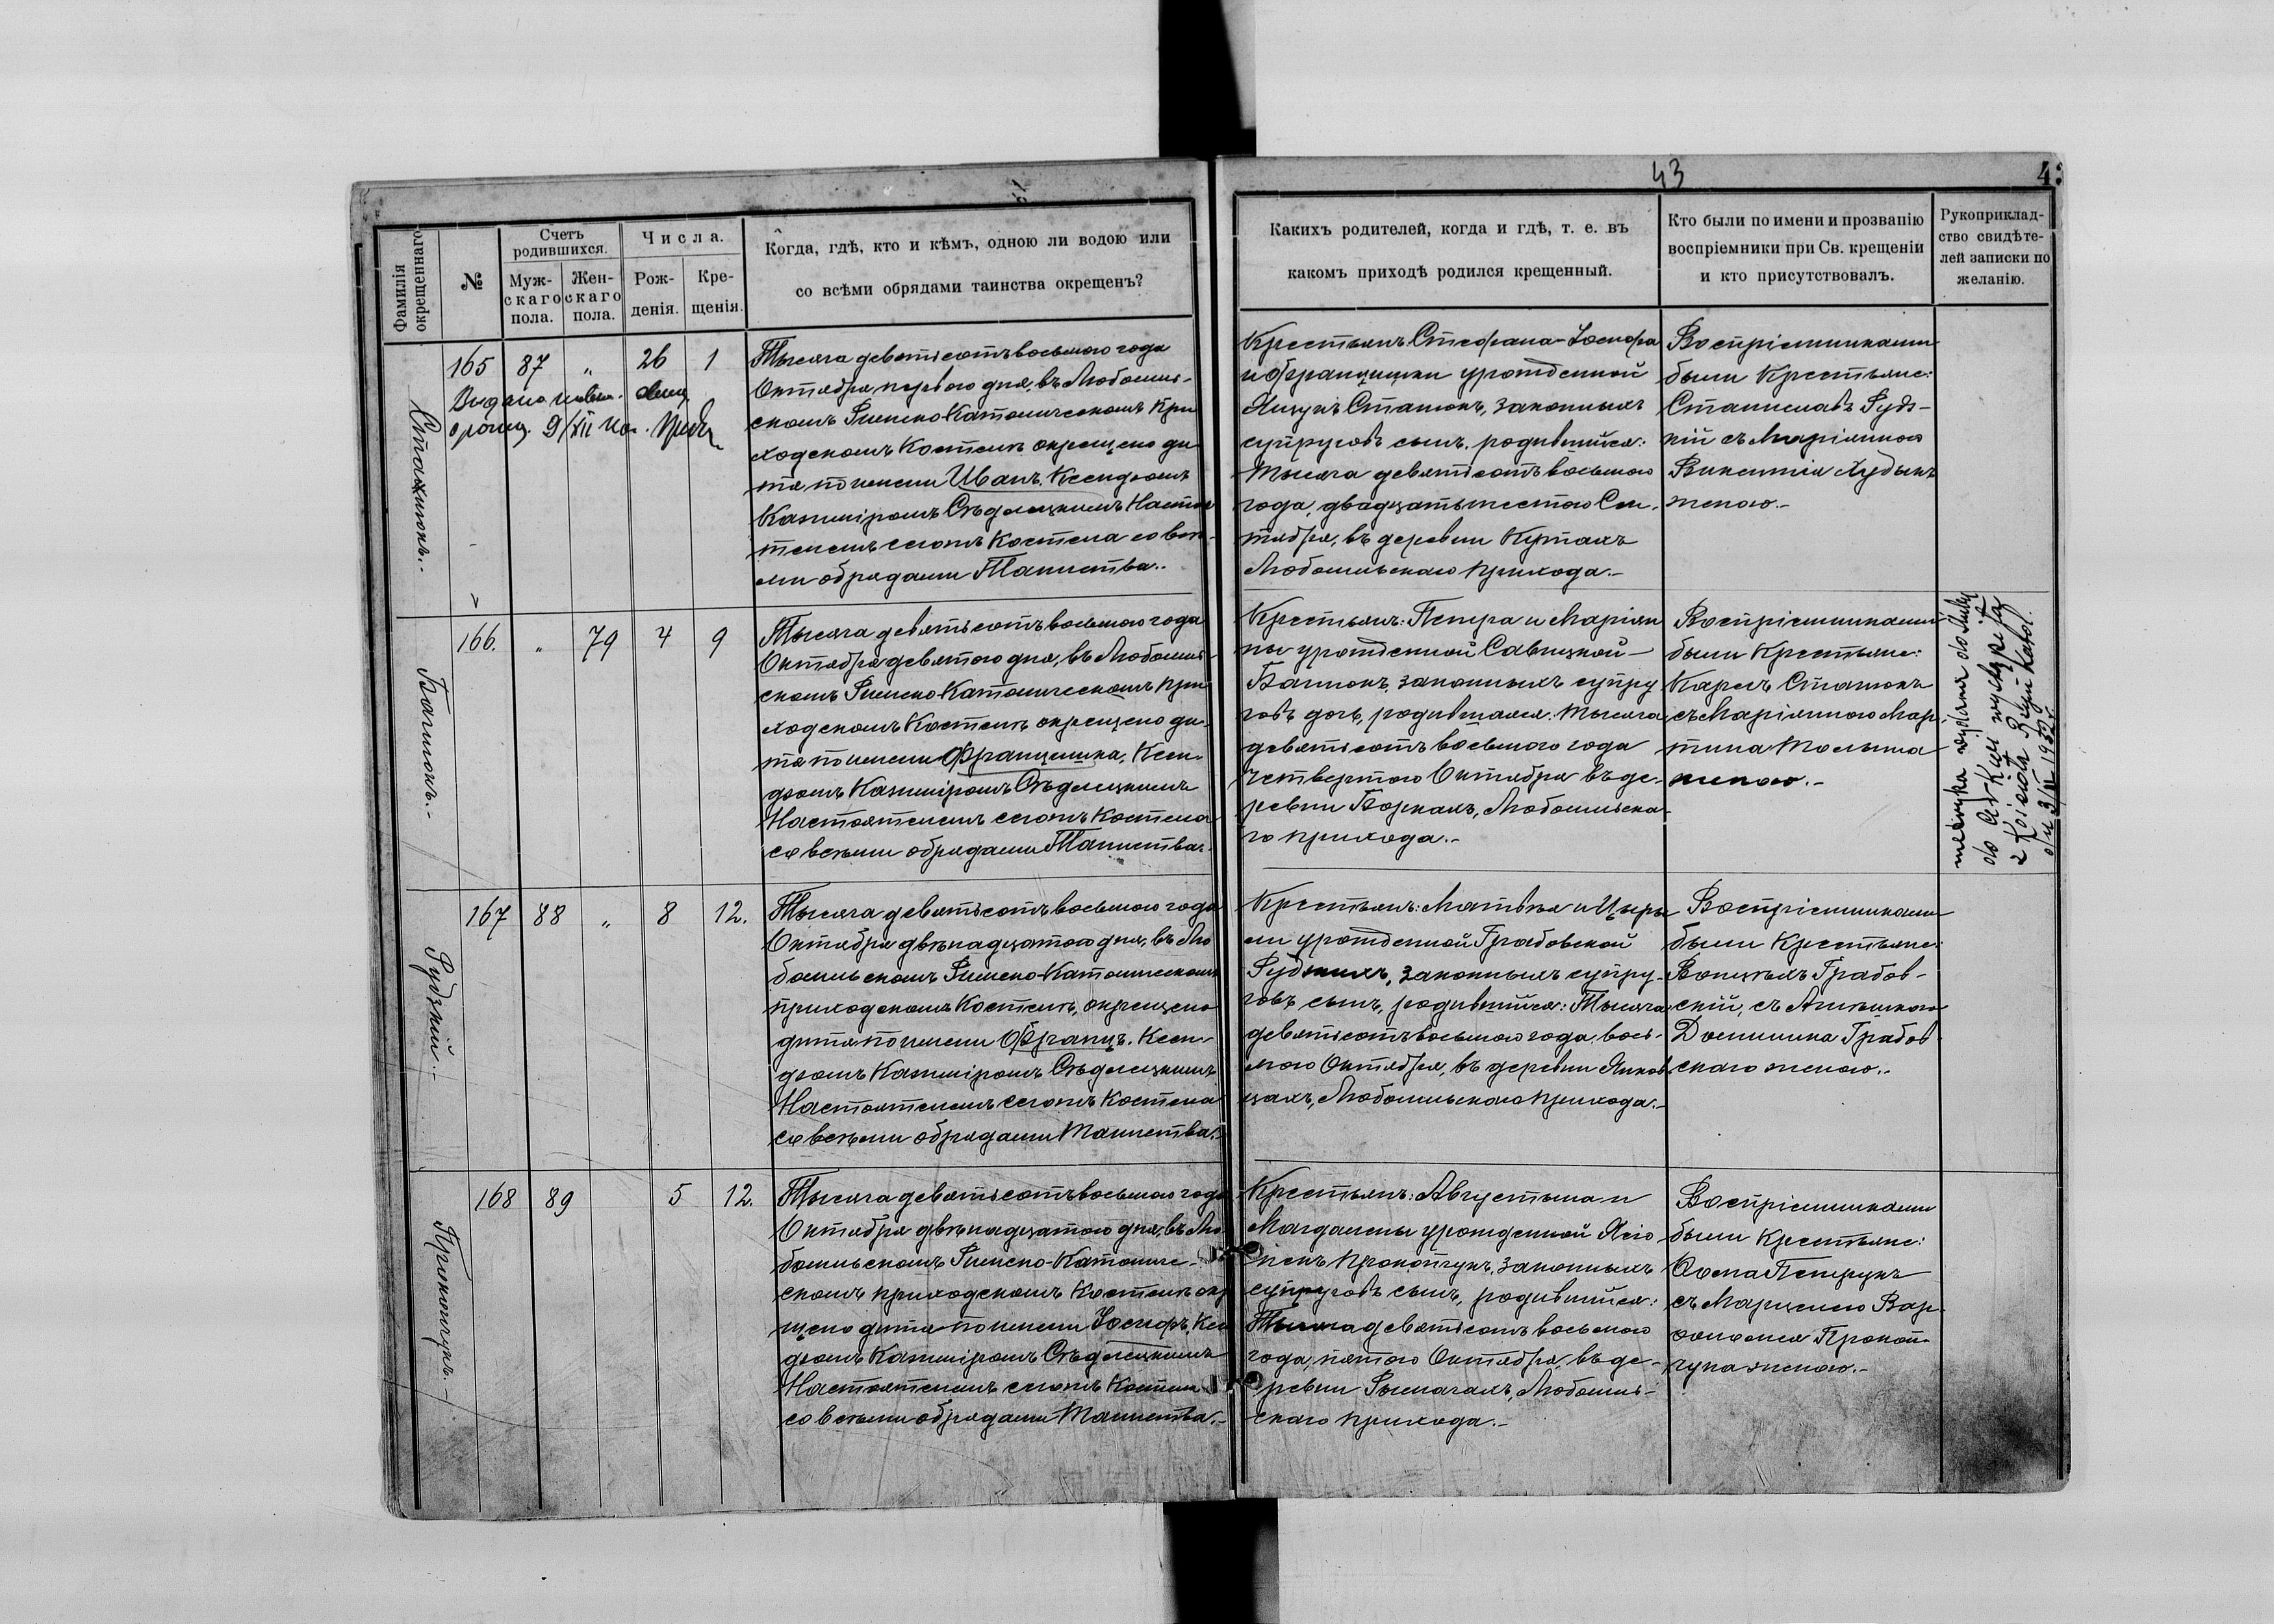 43
4
Фамилія окрещеннаго
№
Счетъ родившихся.
Муж-скаго пола.
Жен-скаго пола.
Числа.
Рож-денія.
Кре-щенія.
Когда, гдѣ, кто и кѣмъ, одною ли водою или
со всѣми обрядами таинства окрещенъ?
Какихъ родителей, когда и гдѣ, т. е. въ
какомъ приходѣ родился крещенный.
Кто были по имени и прозванію
воспріемники при Св. крещеніи
и кто присутствовалъ.
Рукоприклад-
ство свидѣте-
лей записки по
желанію.
165 87 „ 26 1
9/XII
Тысяча девятьсотъ восьмого года
Октября перваго дня, въ Любомль-
скомъ Римско Католическомъ При
ходскомъ Костелѣ окрещено ди
тя по имени Иванъ, Ксендзомъ
Казиміромъ Сѣдлецкимъ Настоя
телемъ сегожъ Костела со всѣ-
ми обрядами Таинства.
Крестьянъ: Стефана-Іосифа
и Францишки урожденной
Яцукъ Стажюкъ, законныхъ
супруговъ сынъ, родившійся:
Тысяча девятьсотъ восьмого
года, двадцать шестого Сен-
тября, въ деревни
Любомльскаго прихода.-
Воспріемниками
были Крестьяне:
Станиславъ Рудз-
кій съ Маріянною
Викентія
женою.-
166. „ 79 4 9
Тысяча девятьсотъ восьмого года
Октября девятого дня, въ Любомль-
скомъ Римско Католическомъ при
ходскомъ Костелѣ окрещено ди-
тя по имени Францишка, Ксен-
дзомъ Казиміромъ Сѣдлецкимъ
Настоятелемъ сегожъ Костела
со всѣми обрядами Таинства.
Крестьянъ: Петра и Маріян
ны урожденной Савицкой-
законныхъ супру
говъ дочь, родившаяся: Тысяча
девятьсотъ восьмого года
Четвертого Октября въ де-
ревни Боркахъ, Любомльска-
го прихода.-
Воспріемниками
были Крестьяне:
Карлъ
съ Маріянною Мар-
тина
женою.-
metryka wydana do
do
z Kościoła Rzym Katol.
167 88 „ 8 12.
Рудзкій.-
Тысяча девятьсотъ восьмого года
Октября двѣнадцатого дня, въ Лю
бомльскомъ Римско-Католическомъ
приходскомъ Костелѣ, окрещено
дитя по имени Францъ, Ксен-
дзомъ Казиміромъ Сѣдлецкимъ
Настоятелемъ сегожъ Костела
со всѣми обрядами Таинства.-
Крестьянъ: Матвѣя и Цыры
ли урожденной Грабовской
Рудзкихъ, законныхъ супру-
говъ сынъ, родившійся: Тысяча
девятьсотъ восьмого года, вось-
мого Октября, въ деревни Янков
цахъ, Любомльскаго прихода.-
Воспріемниками
были Крестьяне:
Войцѣхъ Грабов-
скій, съ
Доминика Грабов
скаго женою.-
168 89 5 12.
Прикопчукъ.-
Тысяча девятьсотъ восьмого года
Октября двѣнадцатого дня, въ Лю
бомльскомъ Римско-Католиче-
скомъ приходскомъ Костелѣ окре
щено дитя по имени Іосифъ, Ксен
дзомъ Казиміромъ Сѣдлецкимъ
Настоятелемъ сегожъ Костела
со всѣми обрядами Таинства.-
Крестьянъ: Августына и
Магдалены урожденной
Прокопчукъ, законныхъ
супруговъ сынъ, родившійся:
Тысяча девятьсотъ восьмого
года, пятого Октября, въ де-
ревни Рымачахъ, Любомль-
скаго прихода.-
Воспріемниками
были Крестьяне:
Ѳома Петрукъ
съ Марцелею Вар-
ѳоломея Прокоп-
чука женою.-